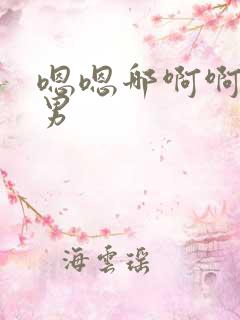 嗯嗯那啊啊
男
海雲瑶